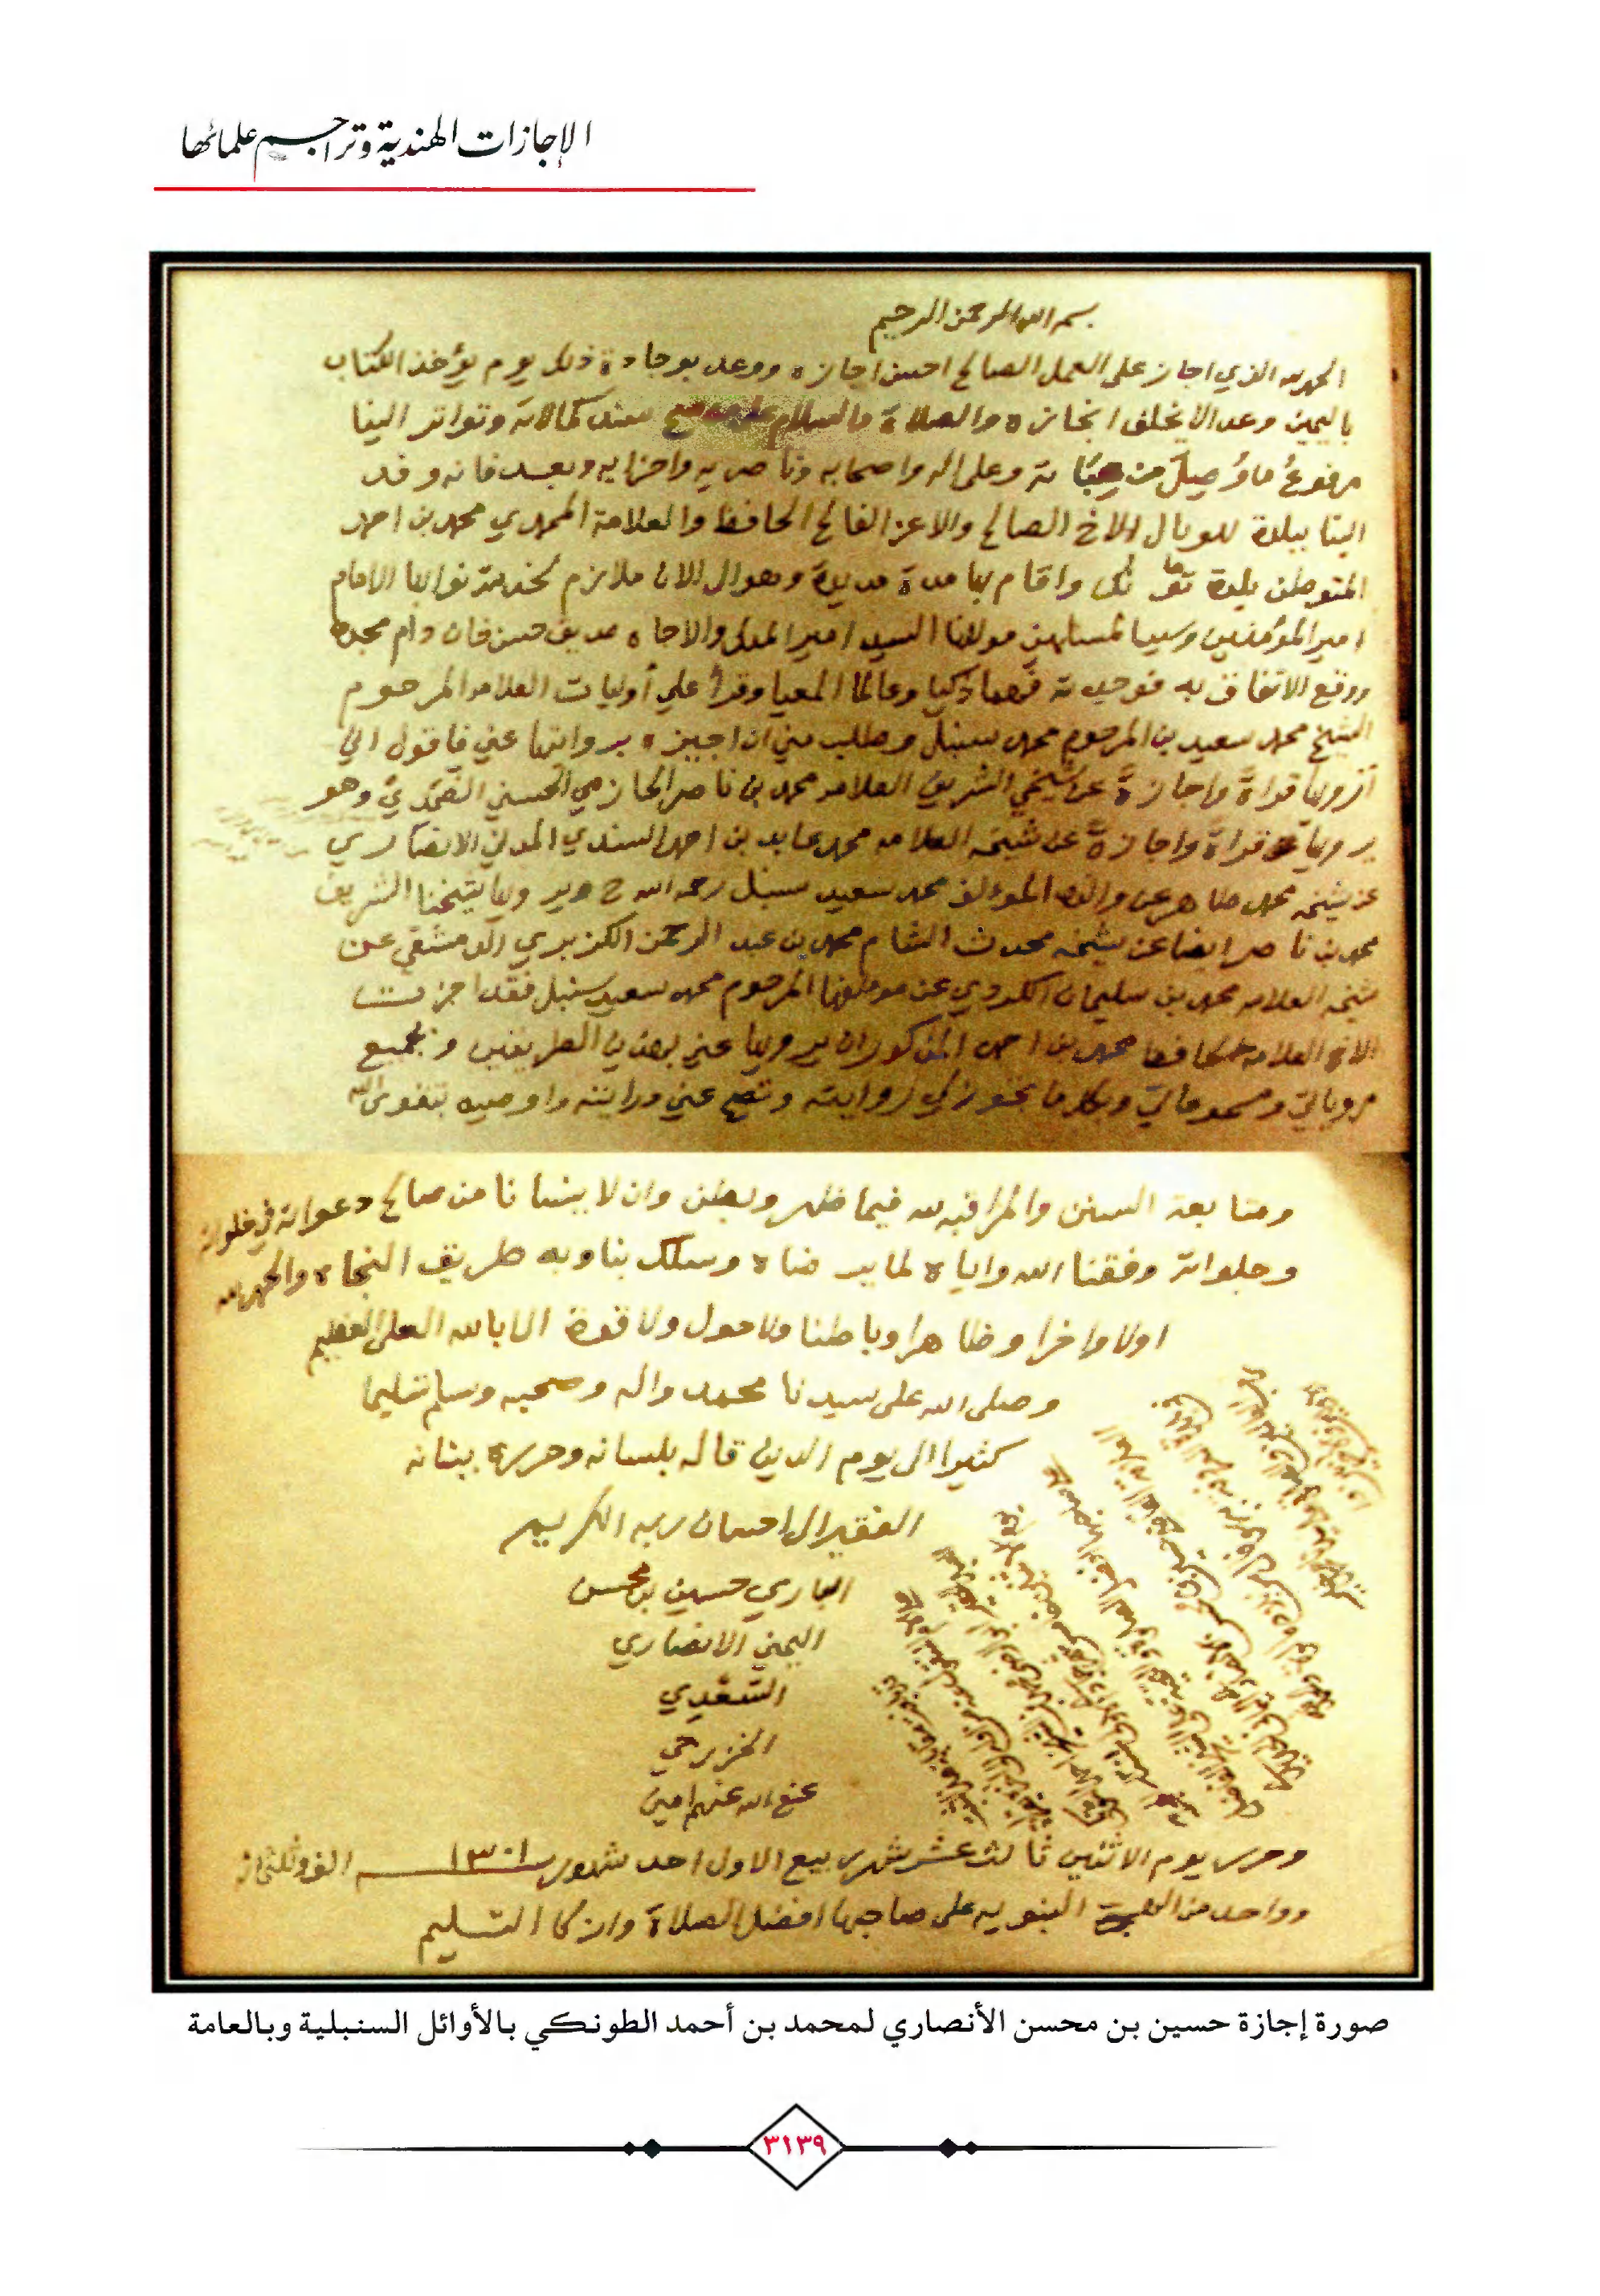 الإجازات الهندية وتراجم علمائها
بسم الله الرحمن الرحيم
الحمد لله الذي اجاز على العمل الصالح احسن اجازه ووعد بوجادة ذلك يوم يؤخذ الكتاب
باليمين وعدا لا يخلف انجازه والصلاة والسلام على من صح سند كمالاته وتواتر الينا
مرفوع ما وُصِل من هباته وعلى اله واصحابه وناصريه واحزابه وبعد فانه وفد
الينا ببلدة بهوبال الاخ الصالح والاعز الفالح الحافظ والعلامة المحمدي محمد بن احمد
المتوطن بلدة تونكى واقام بها مدة مديدة وهو الى الان ملازم لخدمة نوابها الامام
امير المؤمنين وسيد المسلمين مولانا السيد امير الملك والاجاه صديق حسن خان دام مجده
ووقع الاتفاق به فوجدته فهما ذكيا وعالما المعيا وقرأ علي أوليات العلامه المرحوم
الشيخ محمد سعيد بن المرحوم محمد سنبل وطلب مني ان اجيزه بروايتها عني فاقول اني
ارويها قراةً واجازةً عن شيخي الشريف العلامه محمد بن ناصر الحازمي الحسني الضمدي وهو
يرويها قراةً واجازةً عن شيخه العلامه محمد عابد بن احمد السندي المدني الانصاري
عن شيخه محمد طاهر عن والده المؤلف محمد سعيد سنبل رحمه الله ح ويرويها شيخنا الشريف
محمد بن ناصر ايضا عن شيخه محدث الشام محمد بن عبد الرحمن الكزبري الدمشقي عن
شيخه العلامه محمد بن سليمان الكردي عن مؤلفها المرحوم محمد سعيد سنبل فقد اجزت
الاخ العلامه الحافظ محمد بن احمد المذكور ان يرويها عني بهذين الطريقين وبجميع
مروياتي ومسموعاتي وبكل ما يجوز لي روايته وتصح عني درايته واوصيه بتقوى الله
ومتابعة السنن والمراقبه لله فيما ظهر وبطن وان لا ينسانا من صالح دعواته في خلواته
وجلواته وفقنا الله واياه لما يرضاه وسلك بنا وبه طريق النجاه والحمد لله
اولا واخرا وظاهرا وباطنا ولا حول ولا قوة الا بالله العلي العظيم
وصلى الله على سيدنا محمد واله وصحبه وسلم تسليما
كثيرا الى يوم الدين قاله بلسانه وحرره ببنانه
الفقير الى احسان ربه الكريم
الباري حسين بن محسن
اليمني الانصاري
السَّعْدِي
الخزرجي
عفى الله عنهم امين
وحرر يوم الاثنين ثالث عشر شهر ربيع الاول احد شهور ١٣٠١ الف وثلثمائه
وواحد من الهجرة النبويه على صاحبها افضل الصلاة وازكا التسليم
صورة إجازة حسين بن محسن الأنصاري لمحمد بن أحمد الطونكي بالأوائل السنبلية وبالعامة
٣١٣٩